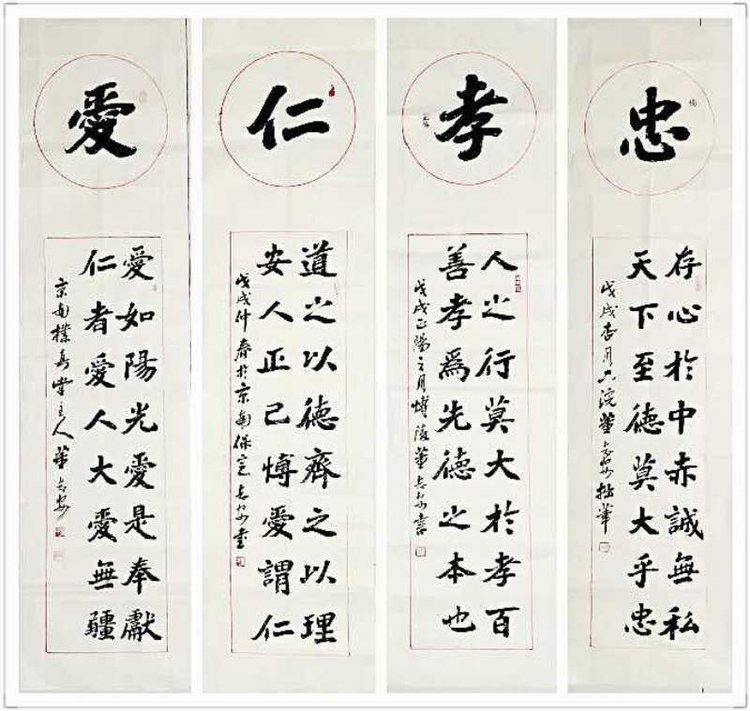 忠
存心於中赤誠無私
天下至德莫大乎忠
戊戌杏月浣董拙筆
孝
人之行莫大於孝百
善孝爲先德之本也
戊戌正陽之月愽陵董書
仁
道之以德齊之以理
安人正己愽愛謂仁
戊戌仲春於京南保定書
愛
愛如陽光愛是奉獻
仁者愛人大愛無疆
京南樸堂主人董